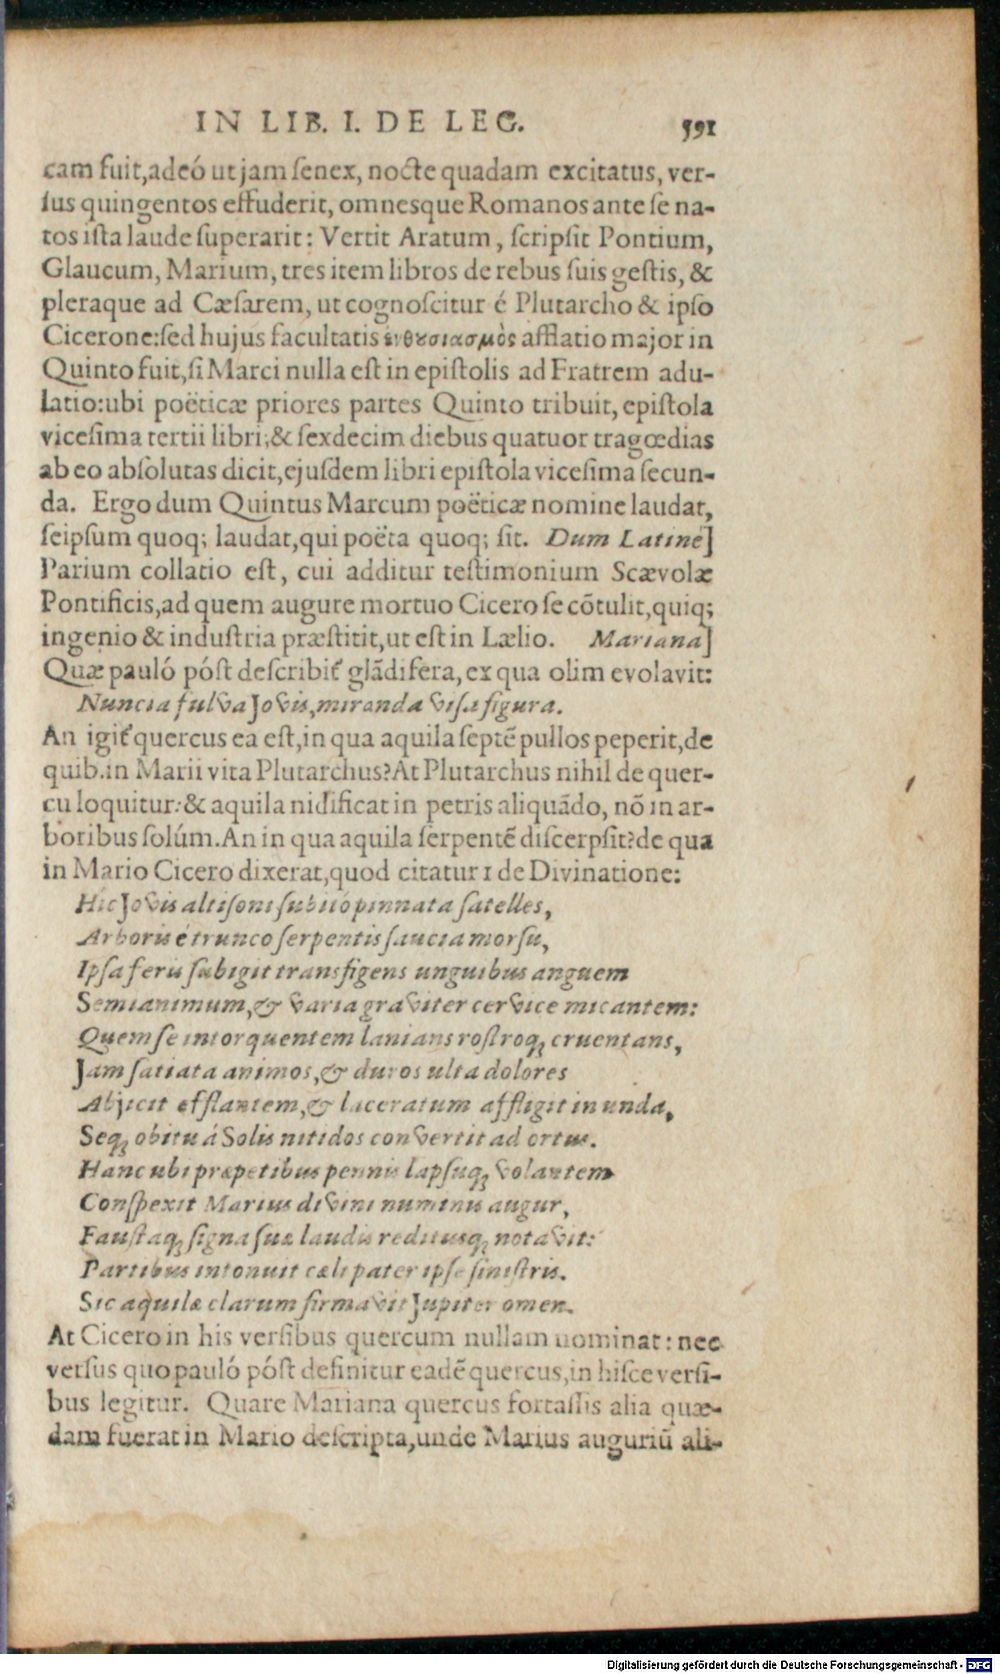 IN LIB. I. DE LEG. 591
cam fuit,adeó ut jam ſenex, nocte quadam excitatus, ver-
ſus quingentos effuderit, omnesque Romanos ante ſe na-
tos iſta laude ſuperarit: Vertit Aratum, ſcripſit Pontium,
Glaucum, Marium, tres item libros de rebus ſuis geſtis, &
pleraque ad Cæſarem, ut cognoſcitur é Plutarcho & ipſo
Cicerone:ſed hujus facultatis ἐνθȣσιασμὸς afflatio major in
Quinto fuit,ſi Marci nulla eſt in epiſtolis ad Fratrem adu-
latio:ubi poëticæ priores partes Quinto tribuit, epiſtola
viceſima tertii libri;& ſexdecim diebus quatuor tragœdias
ab eo abſolutas dicit,ejuſdem libri epiſtola viceſima ſecun-
da. Ergo dum Quintus Marcum poëticæ nomine laudat,
ſeipſum quoq; laudat,qui poëta quoq; ſit. Dum Latinè]
Parium collatio eſt, cui additur teſtimonium Scævolæ
Pontificis,ad quem augure mortuo Cicero ſe cõtulit,quiq;
ingenio & induſtria præſtitit,ut eſt in Lælio. Mariana]
Quæ pauló póſt deſcribit᷑ glãdifera, ex qua olim evolavit:
Nuncia fulva Jovis,miranda viſa figura.
An igit᷑ quercus ea eſt,in qua aquila ſeptẽ pullos peperit,de
quib.in Marii vita Plutarchus?At Plutarchus nihil de quer-
cu loquitur:& aquila nidificat in petris aliquãdo, nõ in ar-
boribus ſolúm.An in qua aquila ſerpentẽ diſcerpſit?de qua
in Mario Cicero dixerat,quod citatur 1 de Divinatione:
Hic Jovis altiſoni ſubitó pinnata ſatelles,
Arboris é trunco ſerpentis ſaucia morſu,
Ipſa feris ſubigit transfigens unguibus anguem
Semianimum,& varia graviter cervice micantem:
Quem ſe intorquentem lanians roſtroq; cruentans,
Jam ſatiata animos,& duros ulta dolores
Abjicit efflantem,& laceratum affligit in unda,
Seq; obitu á Solis nitidos convertit ad ortus.
Hanc ubi præpetibus pennis lapſuq; volantem
Conſpexit Marius divini numinis augur,
Fauſtaq; ſigna ſuæ laudis reditusq; notavit:
Partibus intonuit cæli pater ipſe ſiniſtris.
Sic aquilæ clarum firmavit Jupiter omen.
At Cicero in his verſibus quercum nullam nominat: nec
verſus quo pauló póſt definitur eadẽ quercus,in hiſce verſi-
bus legitur. Quare Mariana quercus fortaſſis alia quæ-
dam fuerat in Mario deſcripta,unde Marius auguriũ ali-
Digitalisierung gefördert durch die Deutsche Forschungsgemeinschaft - DFG